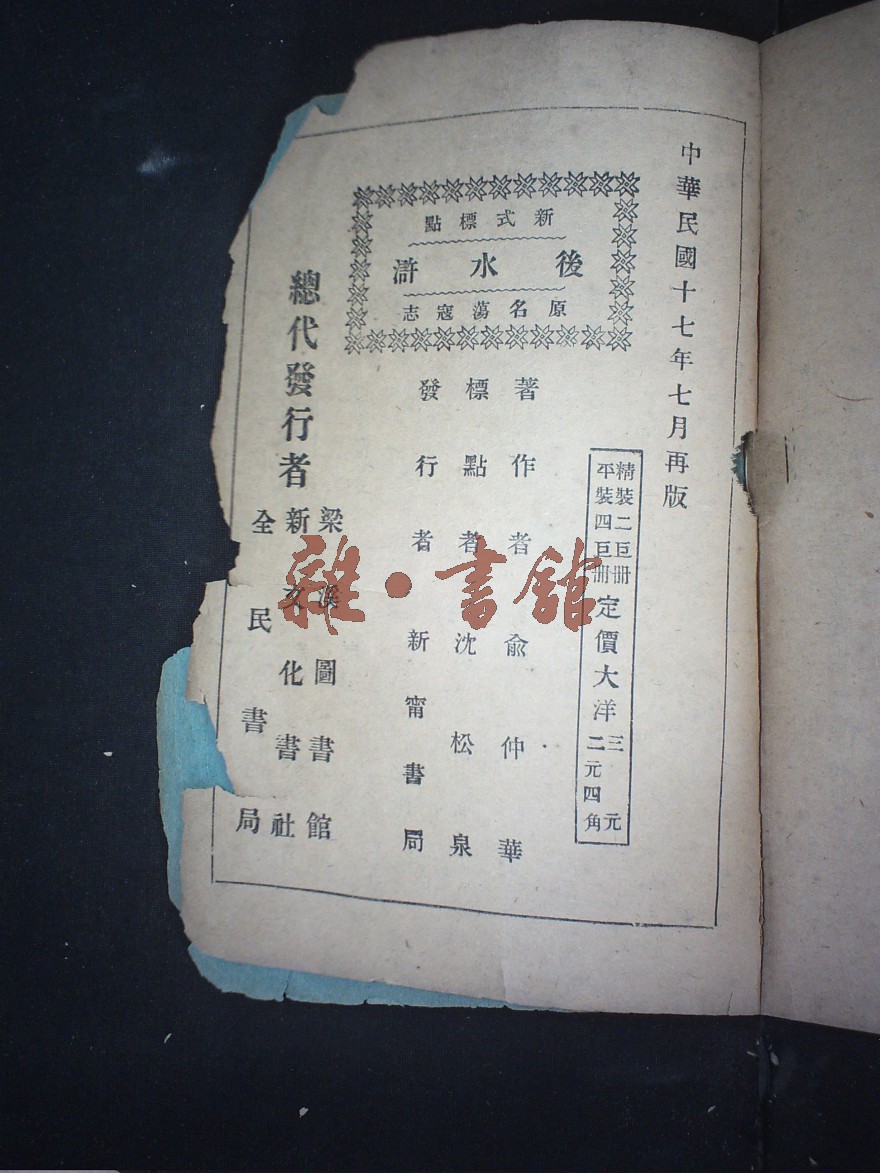 中華民國十七年七月再版
新式標點
後水滸
原名蕩寇志
精裝二巨册
平裝四巨册
定價大洋
三元
二元四角
著作者 俞仲華
標點者 沈松泉
發行者 新甯書局
總代發行者
梁溪圖書館
新文化書社
全民書局
雜·書館